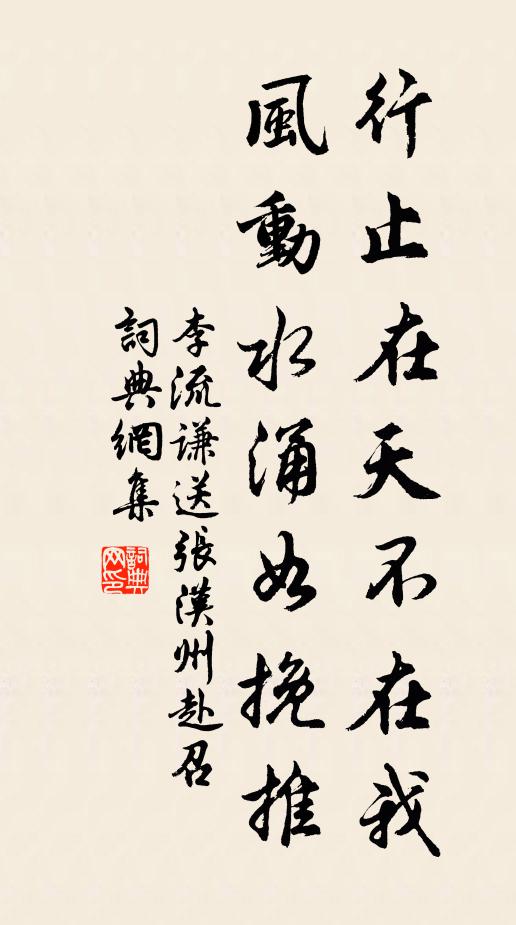 行止在天不在我
風動水涌如挽推
李流谦送張漢州赴召
詞典網集
詞典网印